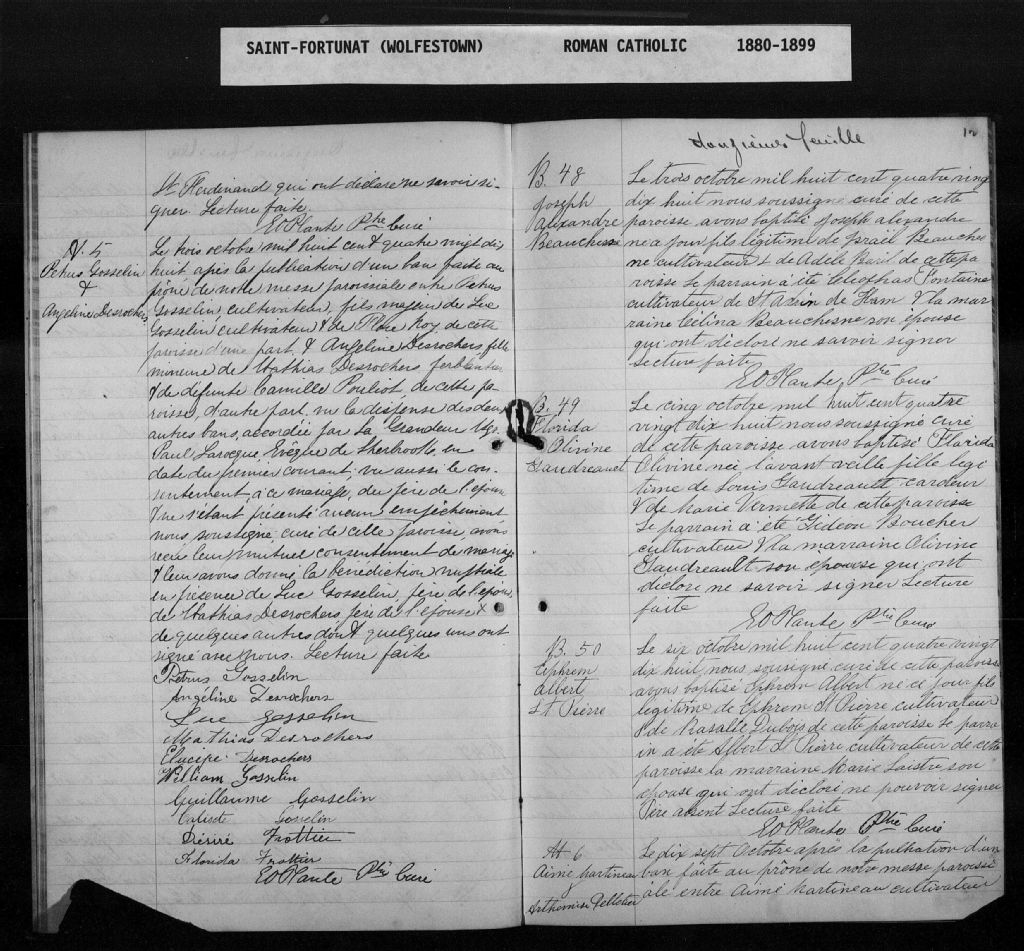 SAINT-FORTUNAT (WOLFESTOWN) ROMAN CATHOLIC 1880-1899
St Ferdinand qui ont déclaré ne savoir si-
gner. Lecture faite
EO Plante Ptre Curé
M. 5
Petrus Gosselin
&
Angéline Desrochers
Le trois octobre mil huit cent quatre vingt dix
huit après la publication d'un ban faite au
prône de notre messe paroissiale entre Petrus
Gosselin, cultivateur, fils majeur de Luc
Gosselin cultivateur & de Roy de cette
paroisse d'une part, & Angéline Desrochers fille
mineure de Mathias Desrochers ferblantier
& de défunte Camille Pouliot de cette pa-
roisse, d'autre part, vu la dispense des deux
autres bans, accordée par Sa Grandeur Mgr
Paul Larocque Evêque de Sherbrooke, en
date du premier courant; vu aussi le con-
sentement à ce mariage, du père de l'épouse
& ne s'étant présenté aucun empêchement
nous, soussigné, curé de cette paroisse, avons
reçu leur mutuel consentement de mariage
& leur avons donné la bénédiction nuptiale
en présence de Luc Gosselin, père de l'époux,
de Mathias Desrochers, père de l'épouse &
de quelques autres dont quelques uns ont
signé avec nous. Lecture faite
Petrus Gosselin
Angéline Desrochers
Luc Gosselin
Mathias Desrochers
Desrochers
William Gosselin
Guillaume Gosselin
Gosselin
Désiré Trottier
Florida Trottier
EO Plante Ptre Curé
douzième feuille
12
B. 48
Joseph
Alexandre
Beauchesne
Le trois octobre mil huit cent quatre ving
dix huit nous soussigné curé de cette
paroisse avons baptisé Joseph Alexandre
né a jour fils légitime de Israël Beauches
ne cultivateur & de Adèle Baril de cette pa
roisse Le parrain a été Cléophas Fontaine
cultivateur de St de Ham & la mar
raine Célina Beauchesne son épouse
qui ont déclaré ne savoir signer
Lecture faite
EO Plante, Ptre Curé
B. 49
Florida
Olivine
Gaudreault
Le cinq octobre mil huit cent quatre
vingt dix huit nous soussigné curé
de cette paroisse avons baptisé Florida
Olivine née l'avant veille fille légi
time de Louis Gaudreault cardeur
& de Marie Vermette de cette paroisse
Le parrain a été Gédéon Boucher
cultivateur & la marraine Olivine
Gaudreault son épouse qui ont
déclaré ne savoir signer Lecture
faite
EO Plante Ptre Curé
B. 50
Ephrem
Albert
St Pierre
Le six octobre mil huit cent quatre vingt
dix huit, nous sousigné curé de cette paroisse
avons baptisé Ephrem Albert né ce jour fils
légitime de Ephrem St Pierre cultivateur
& de Rosalie Dubois de cette paroisse Le parra
in a été Albert St Pierre cultivateur de cette
paroisse la marraine Marie son
épouse qui ont déclaré ne pouvoir signer
Père absent Lecture faite
EO Plante Ptre Curé
M 6
Aimé Martineau
Arthemise Pelletier
Le dix sept Octobre après la d'un
ban faite au prône de notre messe paroissi
ale entre Aimé Martineau cultivateur